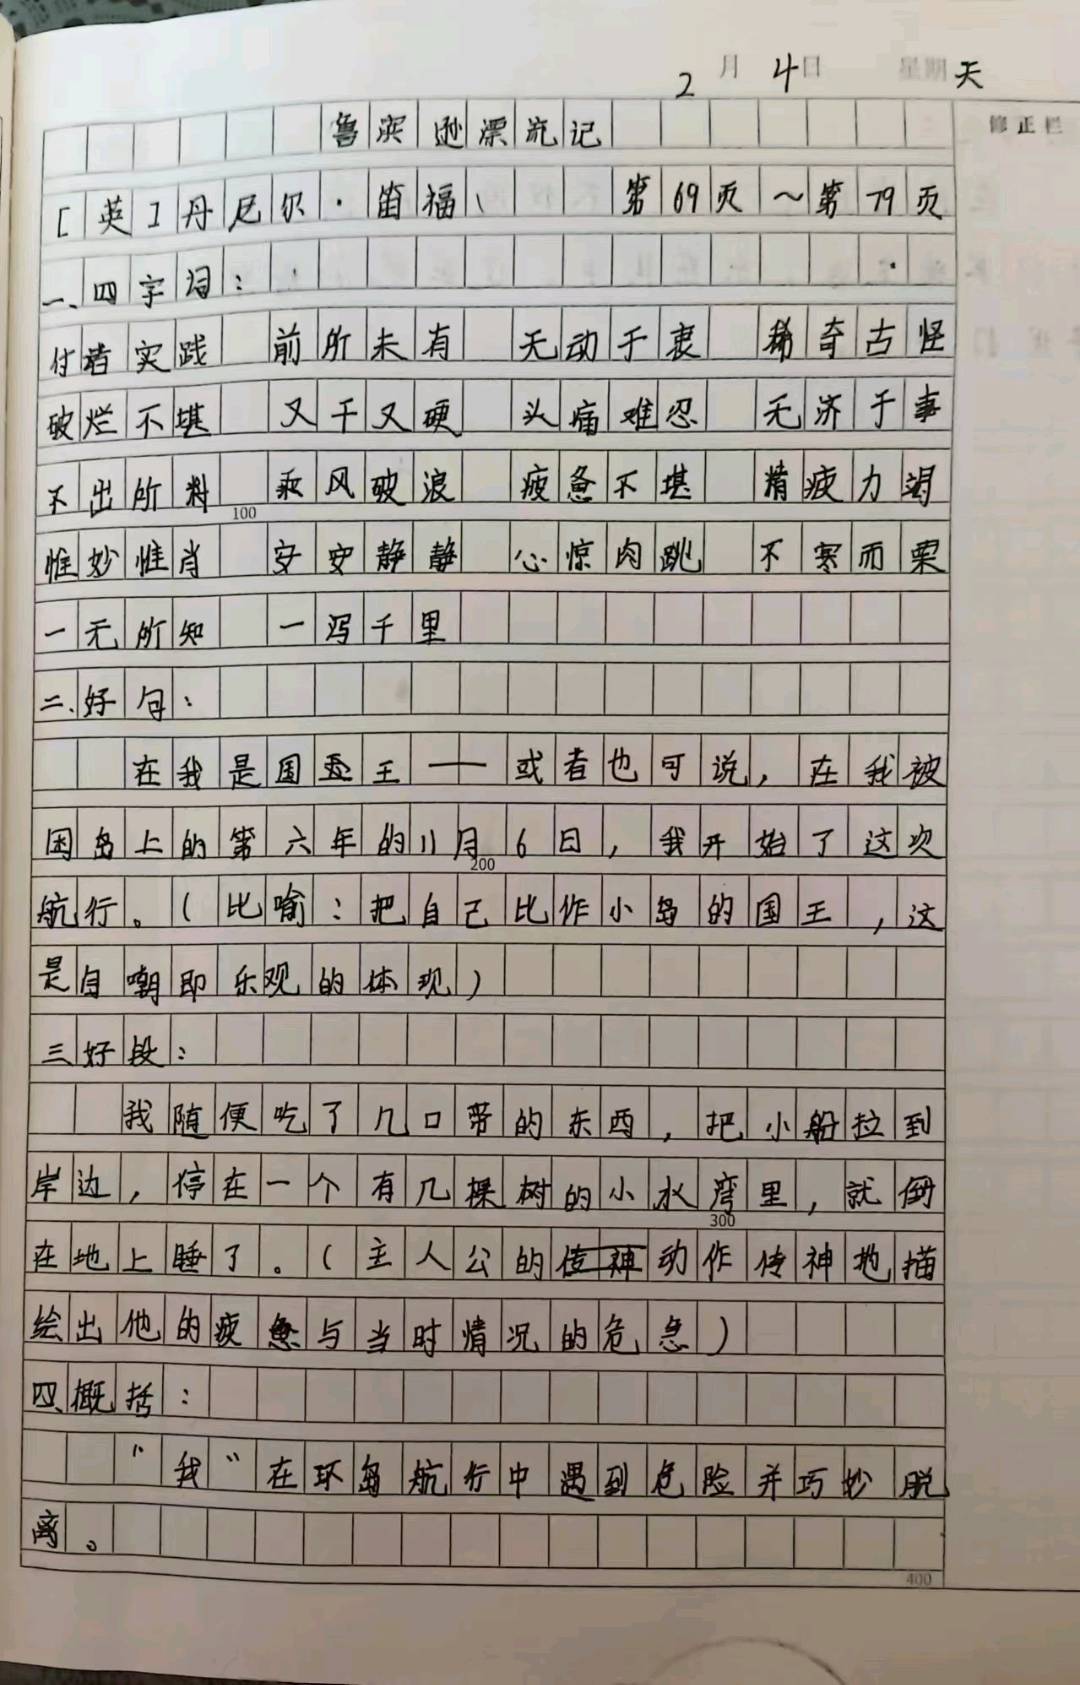 2月4日 星期天
修正栏
鲁滨逊漂流记
[英]丹尼尔·笛福、 第69页~第79页
一、四字词:
付诸实践 前所未有 无动于衷 稀奇古怪
破烂不堪 又干又硬 头痛难忍 无济于事
不出所料 乘风破浪 疲惫不堪 精疲力竭
100
惟妙惟肖 安安静静 心惊肉跳 不寒而栗
一无所知 一泻千里
二.好句:
在我是国王——或者也可说,在我被
困岛上的第六年的11月6日,我开始了这次
200
航行。(比喻:把自己比作小岛的国王,这
是自嘲即乐观的体现)
三好段:
我随便吃了几口带的东西,把小船拉到
岸边,停在一个有几棵树的小水湾里,就倒
300
在地上睡了。(主人公的传神动作传神地描
绘出他的疲惫与当时情况的危急)
四、概括:
“我”在环岛航行中遇到危险并巧妙脱
离。
400